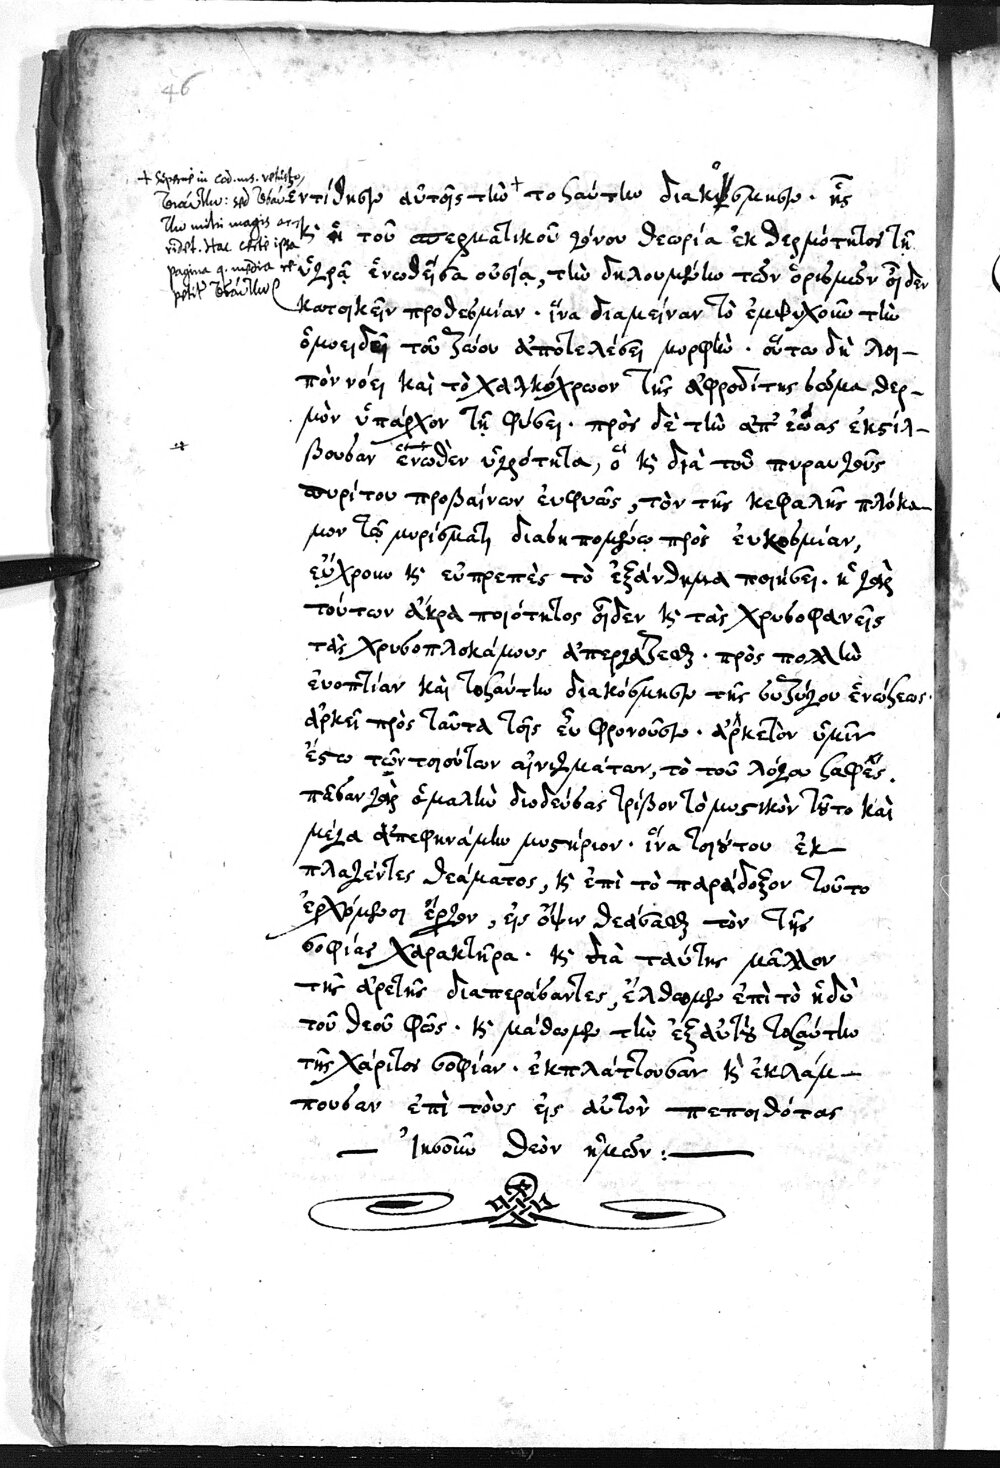 46
+ Superne in cod. ms. vetusto,
sed
magis
videt. Hac certe ipsa
pagina q. media re
petit
ἐντίθησιν αὐτοῖς τὴν + τοσαύτην διακόσμησιν · ἧς
κ ἡ τοῦ σπερματικοῦ γόνου θεωρία ἐκ θερμότητος τῇ
ὑγρᾷ ἑνωθεῖσα οὐσίᾳ, τὴν δηλουμένην τῶν ὁρισμῶν οἶδεν
κατοικεῖν προθεσμίαν · ἵνα διαμείναν τὸ ἔμψυχον τὴν
ὁμοειδεῖ τοῦ ζώου ἀποτελέσει μορφὴν · οὕτω δὴ λοι-
πὸν νόει καὶ τὸ χαλκόχρωον τῆς ἀφροδίτης σῶμα θερ-
μὸν ὑπάρχον τῇ φύσει · πρὸς δὲ τὴν ἀπ' ἐῴας ἐκστίλ-
βουσαν ἔνωθεν ὑγρότητα, ὃ κ διὰ τοῦ πυραυγοῦς
πυρίτου προβαίνων εὐφυῶς, τὸν τῆς κεφαλῆς πλόκα-
μον τῷ μυρίσματι διασηπομένῳ πρὸς εὐκοσμίαν,
εὔχροον κ εὐπρεπὲς τὸ ἐξάνθημα ποιήσει · ἡ γὰρ
τούτων ἄκρα ποιότητος οἶδεν κ τὰς χρυσοφανεῖς
τὰς χρυσοπλοκάμους ἀπεργάζεσθαι · πρὸς πολλὴν
εὐοπτίαν καὶ τοσαύτην διακόσμησιν τῆς συζύγου ἑνώσεως ·
ἀρκεῖ πρὸς ταῦτα τοῖς εὖ φρονοῦσιν · ἀρκετὸν ὑμῖν
ἔστω τῶν τοιούτων αἰνιγμάτων, τὸ τοῦ λόγου σαφές.
πᾶσαν γὰρ ὁμαλὴν διοδεύσας τρίβον τὸ μυστικὸν τοῦτο καὶ
μέγα ἀπεφηνάμην μυστήριον · ἵνα τοιούτου ἐκ-
πλαγέντες θεάματος, κ ἐπὶ τὸ παράδοξον τοῦτο
ἐρχόμενοι ἔργον, εἰς ὄψιν θεάσασθαι τὸν τῆς
σοφίας χαρακτῆρα · κ διὰ ταύτης μᾶλλον
τῆς ἀρετῆς διαπεράσαντες, ἔλθωμεν ἐπὶ τὸ ἡδὺ
τοῦ θεοῦ φῶς · κ μάθωμεν τὴν ἐξ αὐτοῦ τοσαύτην
τῆς χάριτος σοφίαν · ἐκπλάττουσαν κ ἐκλάμ-
πουσαν ἐπὶ τοὺς εἰς αὐτὸν πεποιθότας
— Ἰησοῦν θεὸν ἡμῶν : —